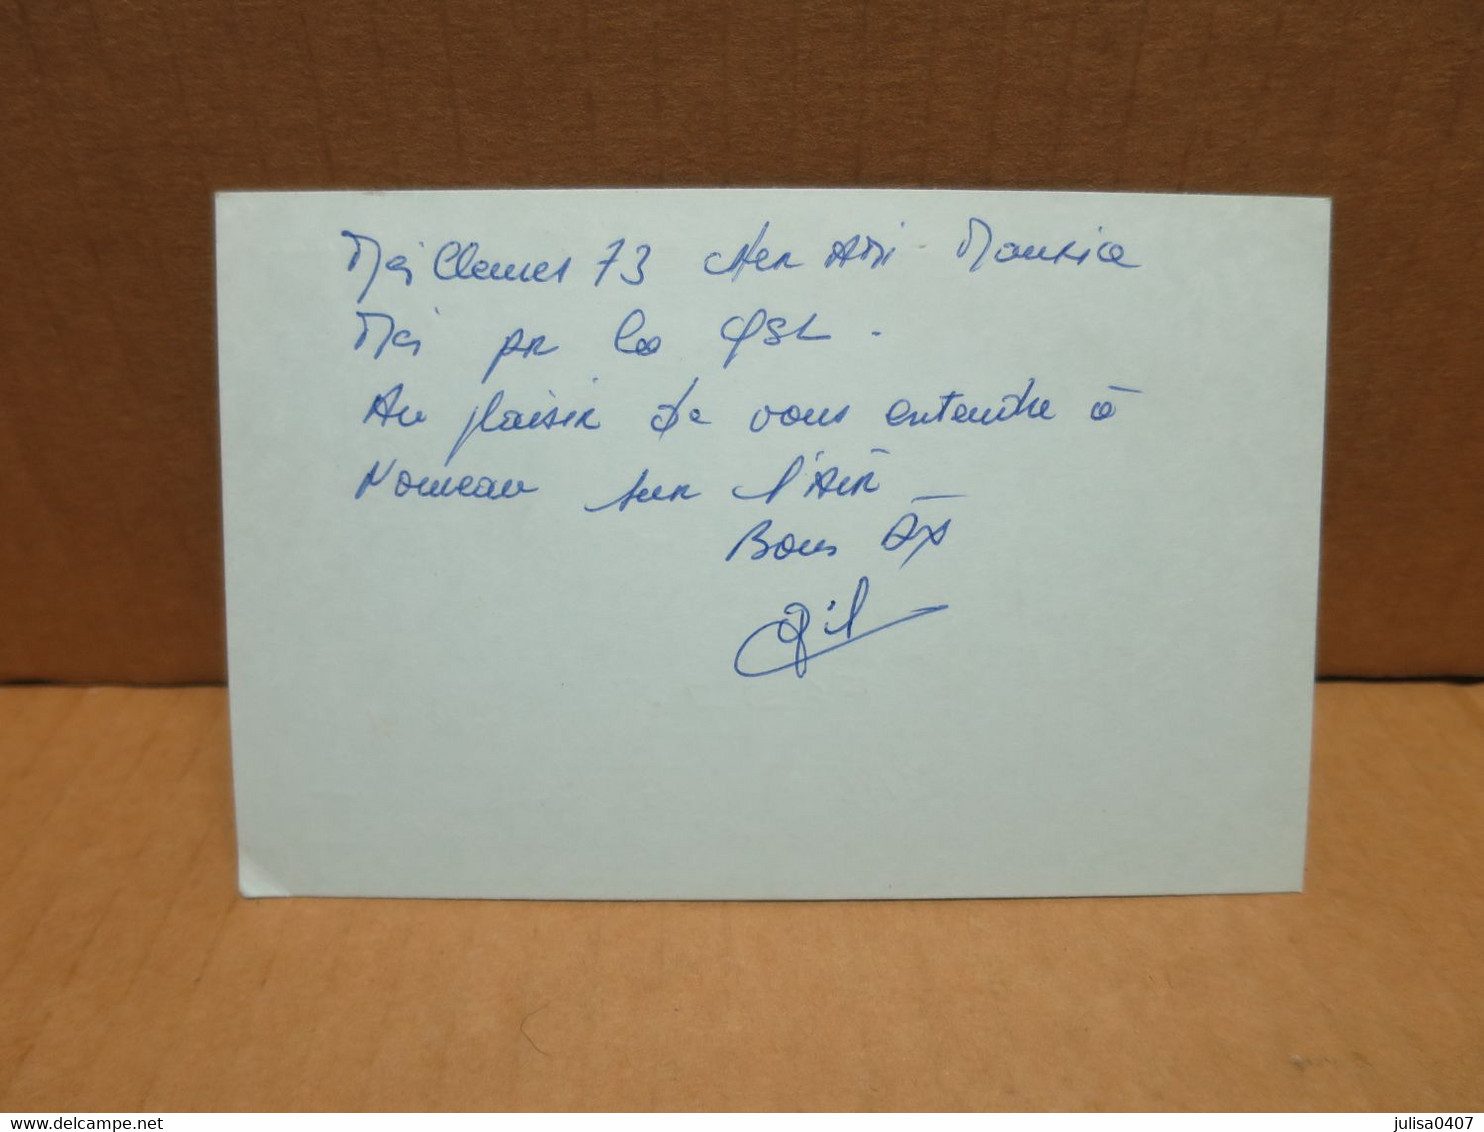 Mei Cleures 73 cher Ami - Maurice
Mci pr la QSL -
Au plaisir de vous entendre à
Nouveau sur l'Air
Bons DX
Gil
delcampe.net
julisa0407